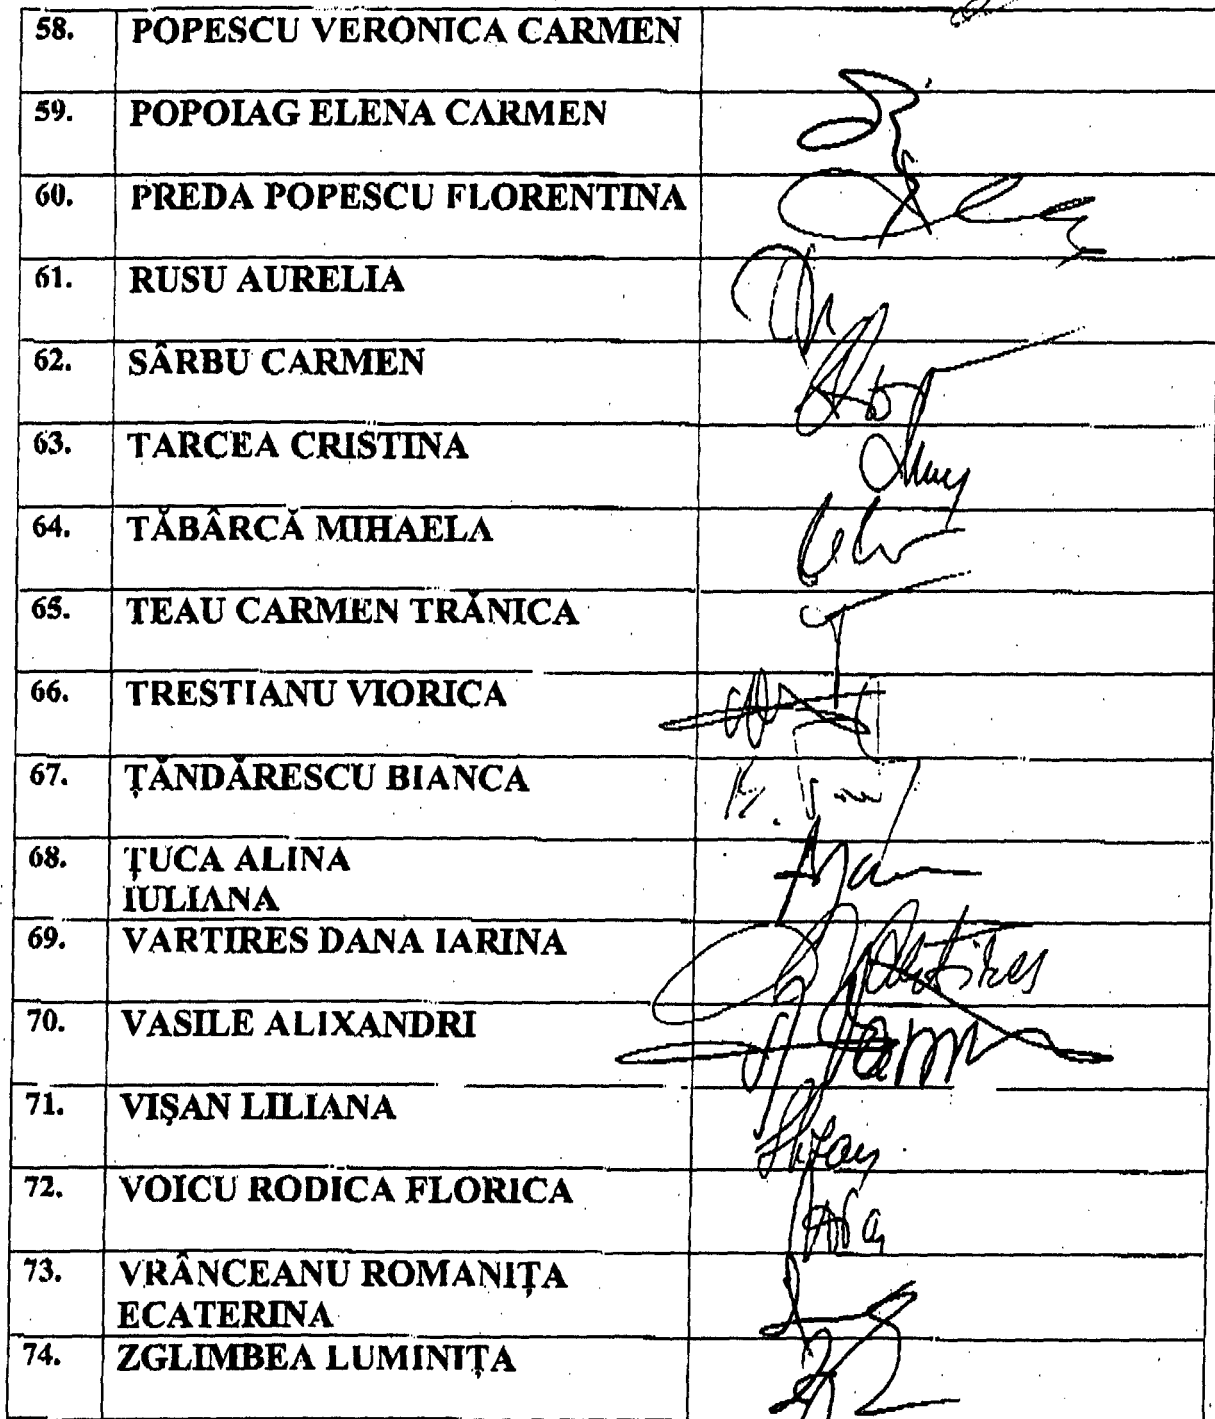 58. POPESCU VERONICA CARMEN
59. POPOIAG ELENA CARMEN
60. PREDA POPESCU FLORENTINA
61. RUSU AURELIA
62. SÂRBU CARMEN
63. TARCEA CRISTINA
64. TĂBÂRCĂ MIHAELA
65. TEAU CARMEN TRĂNICA
66. TRESTIANU VIORICA
67. ȚĂNDĂRESCU BIANCA
68. ȚUCA ALINA
IULIANA
69. VARTIRES DANA IARINA
70. VASILE ALIXANDRI
71. VIȘAN LILIANA
72. VOICU RODICA FLORICA
73. VRÂNCEANU ROMANIȚA
ECATERINA
74. ZGLIMBEA LUMINIȚA